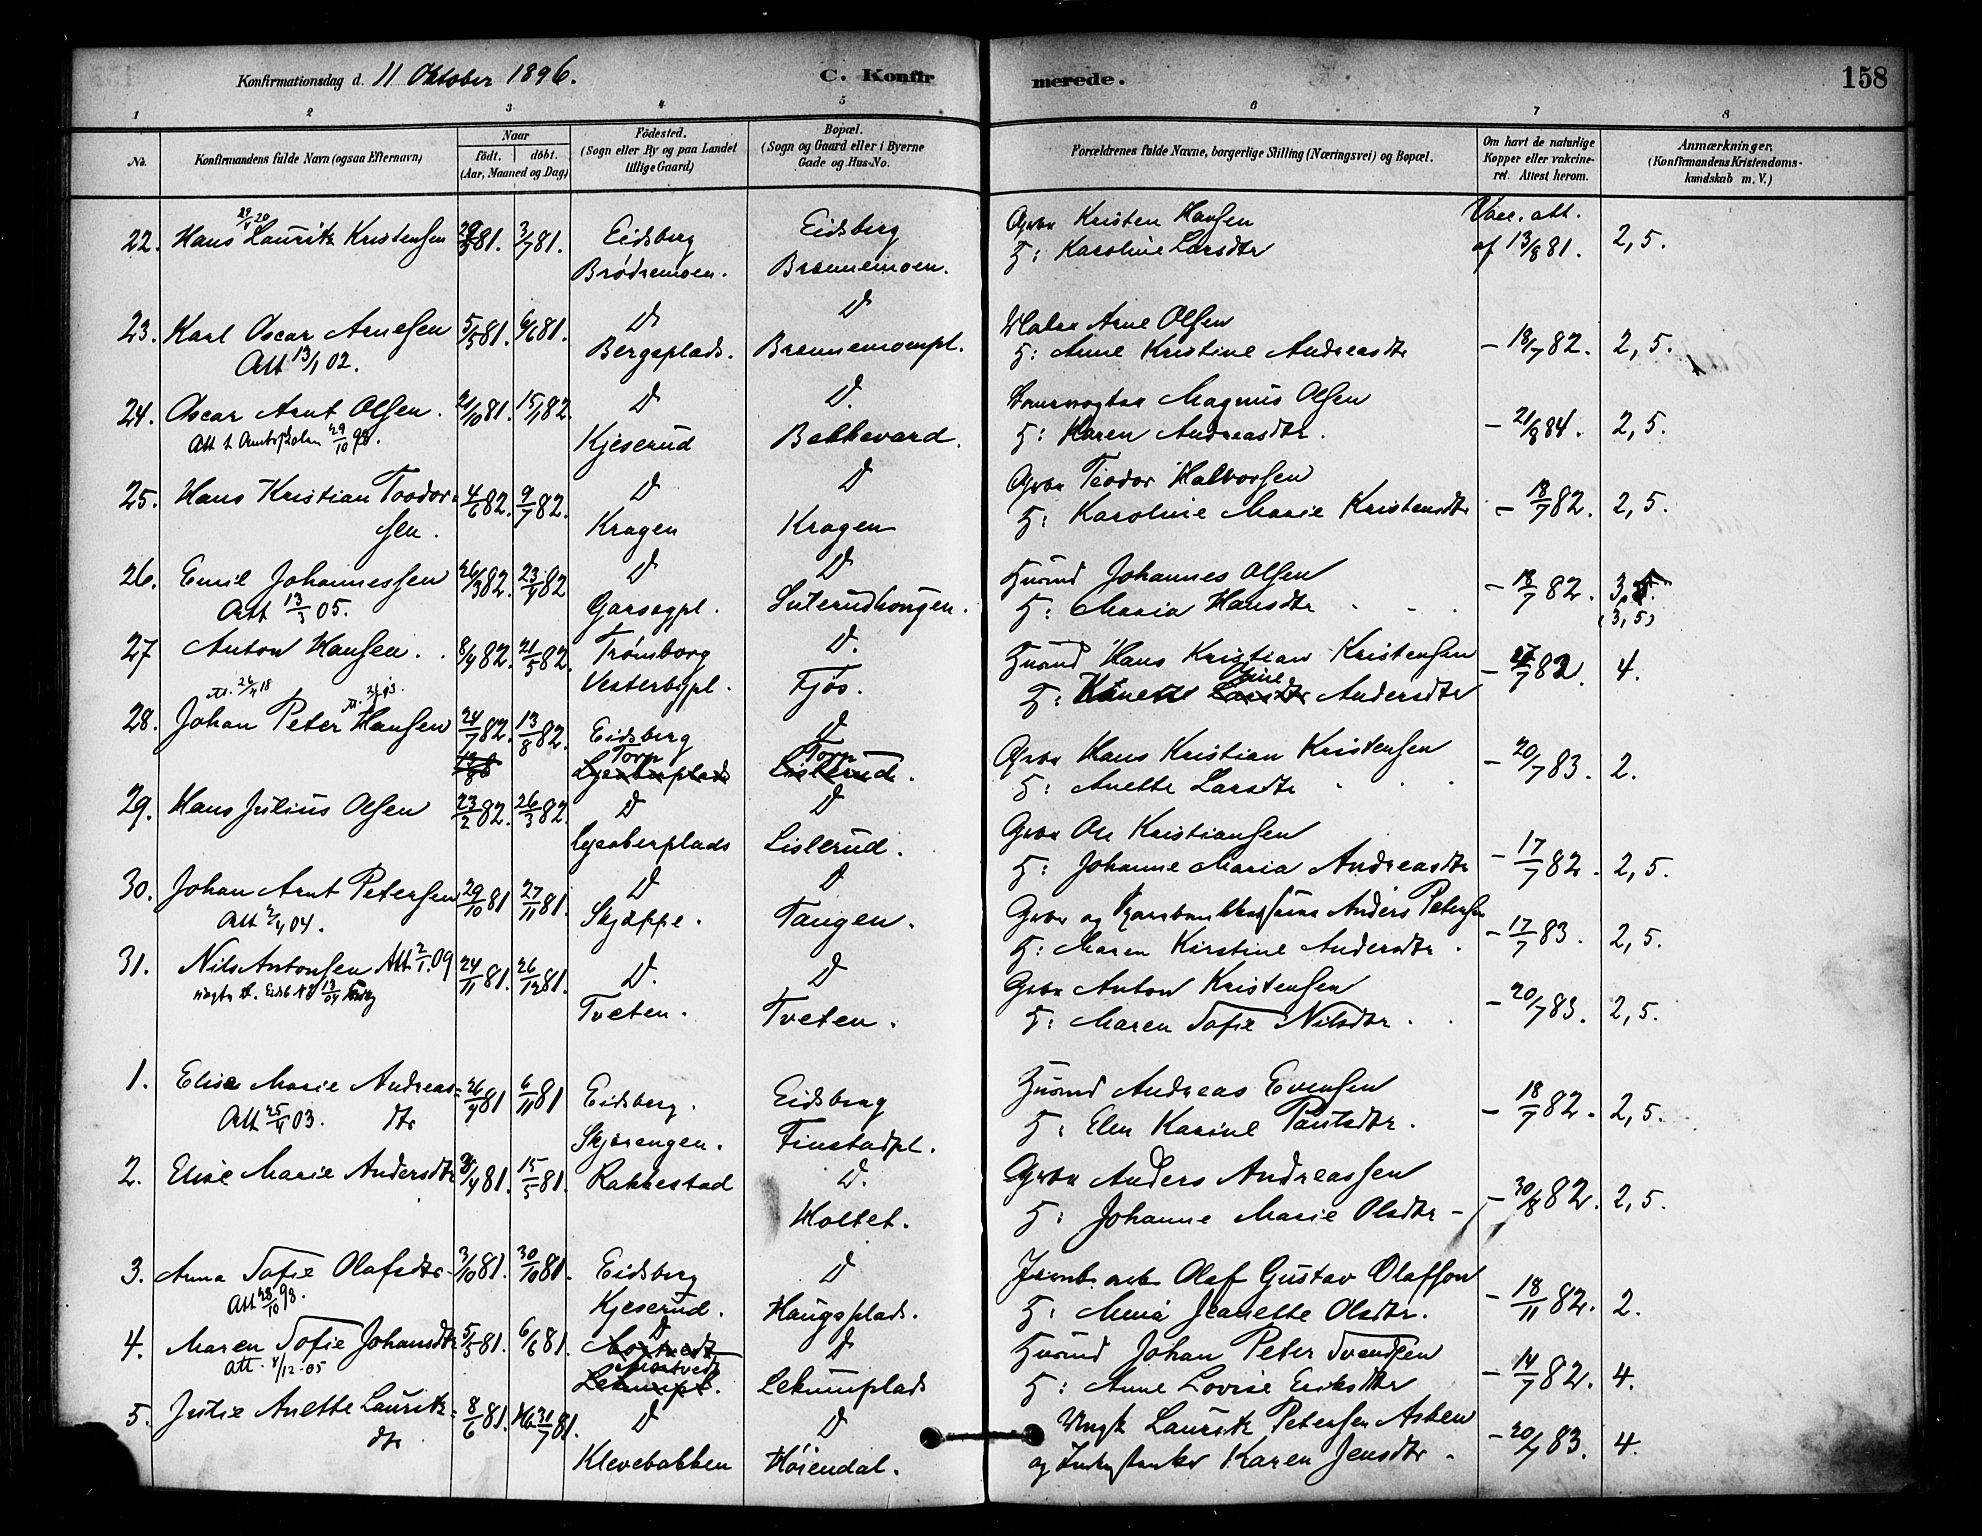 Konfirmationsdag d. 11 Oktober 1896.
C. Konfir
merede.
158
1 2 3 4 5 6 7 8
No.
Konfirmandens fulde Navn (ogsaa Efternavn)
Naar
födt. döbt.
(Aar, Maaned og Dag)
Födested.
(Sogn eller By og paa Landet
tillige Gaard)
Bopæl.
(Sogn og Gaard eller i Byerne
Gade og Hus-No.
Forældrenes fulde Navne, borgerlige Stilling (Næringsvei) og Bopæl.
Om havt de naturlige
Kopper eller vakcine-
ret. Attest herom.
Anmærkninger.
(Konfirmandens Kristendoms-
kundskab m. V.)
22. Hans Lauritz Kristensen 81. 3/7 81. Eidsberg Eidsberg Gbr Kristen Hansen Vacc. att.
Brödremoen. Brennemoen. H: Karoline Larsdtr af 13/8 81. 2,5.
23. Karl Oscar Arnesen 5/5 81. 6/6 81. D D Arne Olsen
Bergsplads. Brennemoenpl. H: Anne Kristine Andreasdtr – 18/7 82. 2,5.
Att 13/1 02.
24. Oscar Arnt Olsen. 21/10 81. 15/1 82. D D. Magnus Olsen
Att t. Amtsskolen 29/10 98. Kjeserud Bekkevard. H: Karen Andreasdtr. – 21/8 84. 2,5.
25. Hans Kristian Teodor= 4/6 82. 9/7 82. D D Gbr Teodor Halvorsen
sen. Kragen Kragen H: Karoline Marie Kristensdtr – 18/7 82. 2,5.
26. Emil Johannessen 26/3 82. 23/4 82 D D Husmd Johannes Olsen
Att 13/3 05. Garsegpl. Suterudhougen. H: Maria Hansdtr – 18/7 82. 3,
(3,5)
27 Anton Hansen. 8/4 82. 21/5 82. Trömborg D. Husmd Hans Kristian Kristensen
Vesterbypl. Fjös. H: Andersdtr – 82. 4.
28. Johan Peter Hansen 24/7 82. 13/8 82. Eidsberg D Gbr Hans Kristian Kristensen
Torp Torp
H: Anette Larsdtr – 20/7 83. 2.
29. Hans Julius Olsen 23/2 82. 26/3 82. D D Gbr Ole Kristiansen
Lyseberplads Lislerud. H: Johanne Maria Andreasdtr – 17/7 82. 2,5.
30. Johan Arnt Petersen 29/10 81 27/11 81. D D Gbr og Anders Petersen
Att 2/4 04. Skjæppe. Tangen. H: Maren Kirstine Andersdtr. – 17/7 83. 2,5.
31. Nils Antonsen Att 2/1 09 24/11 81. 26/12 81. D. D Gbr Anton Kristensen
Tveten. Tveten. H: Maren Sofie Nilsdtr. – 20/7 83. 2,5.
1. Elise Marie Andreas= 26/9 81 6/11 81 Eidsberg. Eidsberg Husmd Andreas Evensen
Att 25/4 03. dtr Skjörengen. Finstadpl. H: Elen Karine Paulsdtr. – 18/7 82. 2,5.
2. Elise Marie Andersdtr /4 81. 15/5 81. Rakkestad D. Gbr Anders Andreassen
Holtet. H: Johanne Marie Olsdtr – 30/8 82. 2,5.
3. Anna Sofie Olafsdtr. 3/10 81. 30/10 81. Eidsberg D Jernb. arb. Olaf Gustav Olafson
Att 28/10 98. Kjeserud. Haugsplads. H: Jeanette Olsdtr. – 18/11 82. 2.
4. Maren Sofie Johansdtr 5/5 81. 6/6 81. D D Husmd Johan Peter Svendsen
Att. 4/12-05 Mortvedt Lekumplads H: Anne Lovise Eriksdtr – 14/7 82. 4.
5. Julie Anette Lauritz= 8/6 81. 31/7 81. D D Ungk Lauritz Petersen Asken
dtr Klevebakken Höiendal. og Karen Jensdtr. – 20/7 83. 4.